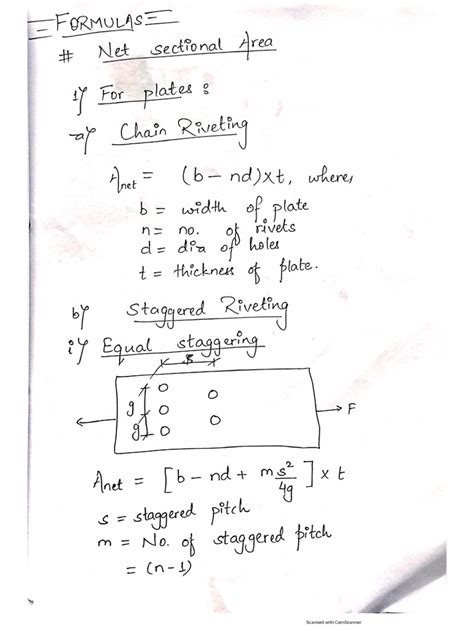 = FORMULAS =
# Net sectional Area
1) For plates :
a) Chain Riveting
Anet = (b - nd) x t, where,
b = width of plate
n = no. of rivets
d = dia of holes
t = thickness of plate.
b) Staggered Riveting
i) Equal staggering
s
g
g
F
Anet = [b - nd + m s²/4g] x t
s = staggered pitch
m = No. of staggered pitch
= (n-1)
Scanned with CamScanner